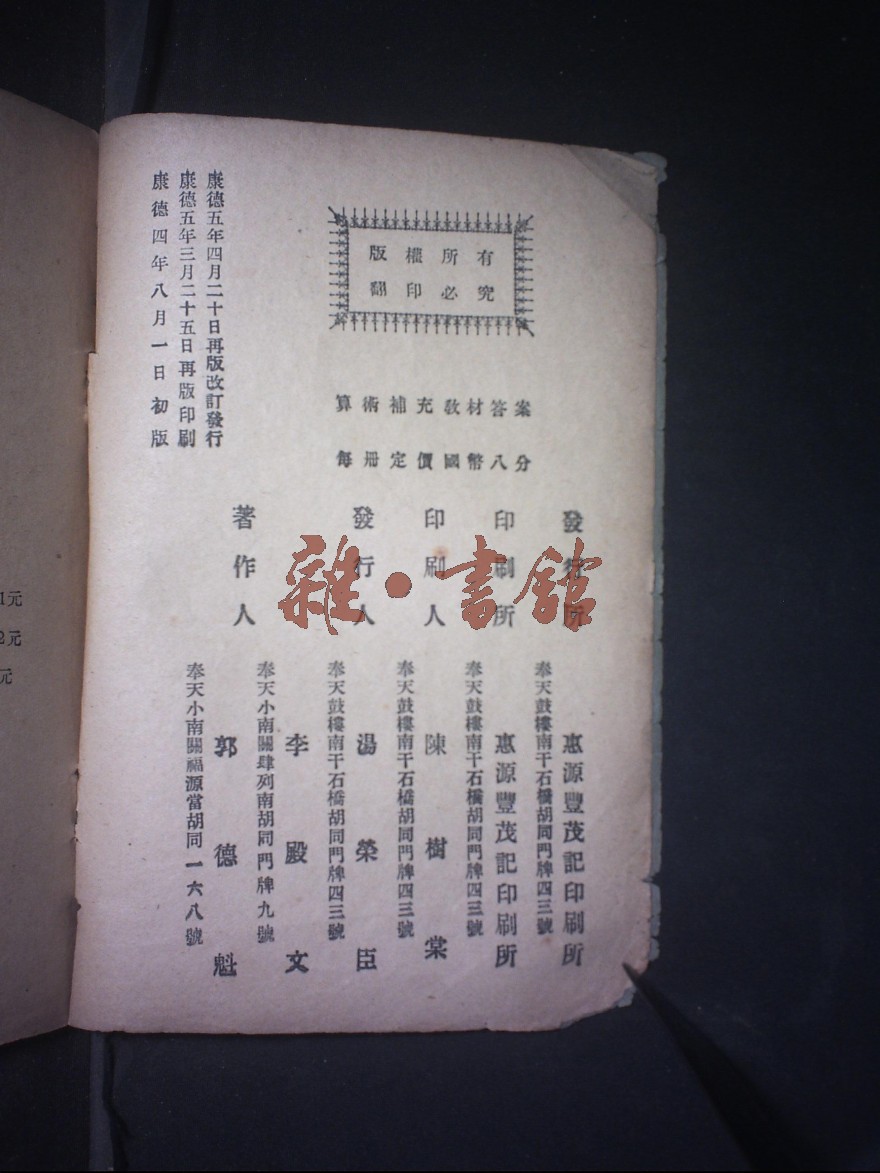 康德四年八月一日初版
康德五年三月二十五日再版印刷
康德五年四月二十日再版改訂發行
版權所有
翻印必究
算術補充教材答案
每冊定價國幣八分
著作人
奉天小南關福源當胡同一六八號
郭德魁
奉天小南關肆列南胡同門牌九號
李殿文
發行人
奉天鼓樓南干石橋胡同門牌四三號
湯榮臣
印刷人
奉天鼓樓南干石橋胡同門牌四三號
陳樹棠
印刷所
奉天鼓樓南干石橋胡同門牌四三號
惠源豐茂記印刷所
發行所
奉天鼓樓南干石橋胡同門牌四三號
惠源豐茂記印刷所
雜·書館
1元
2元
元